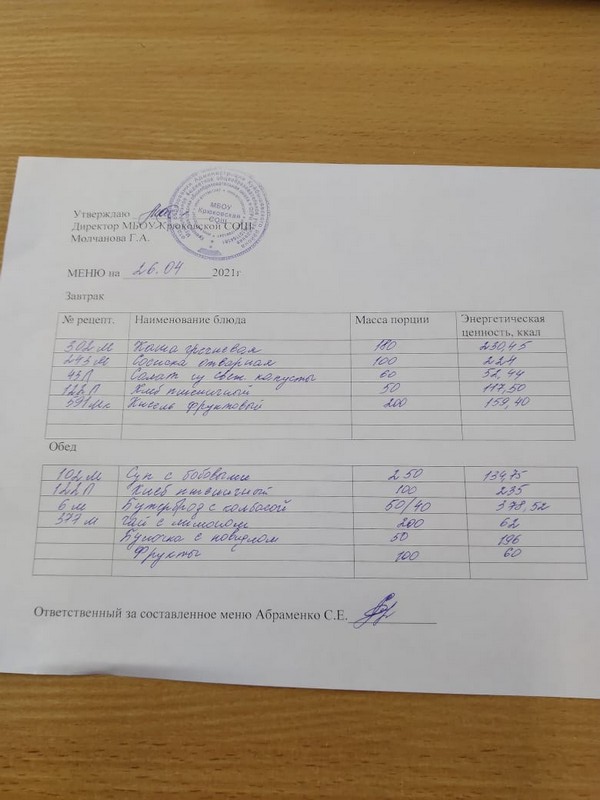 Утверждаю
Директор МБОУ Крюковской СОШ:
Молчанова Г.А.
МБОУ
Крюковская
СОШ
МЕНЮ на 26.04 2021г
Завтрак
№ рецепт. Наименование блюда Масса порции Энергетическая ценность, ккал
302 м Каша гречневая 180 230,45
243 м Сосиска отварная 100 224
43Л Салат из свеж. капусты 60 52,44
122Л Хлеб пшеничный 50 117,50
591мк Кисель фруктовый 200 159,40
Обед
102 м Суп с бобовыми 250 134,75
122Л Хлеб пшеничный 100 235
6 м Бутерброд с колбасой 50/40 378,52
377 м Чай с лимоном 200 62
Булочка с повидлом 50 196
Фрукты 100 60
Ответственный за составленное меню Абраменко С.Е.